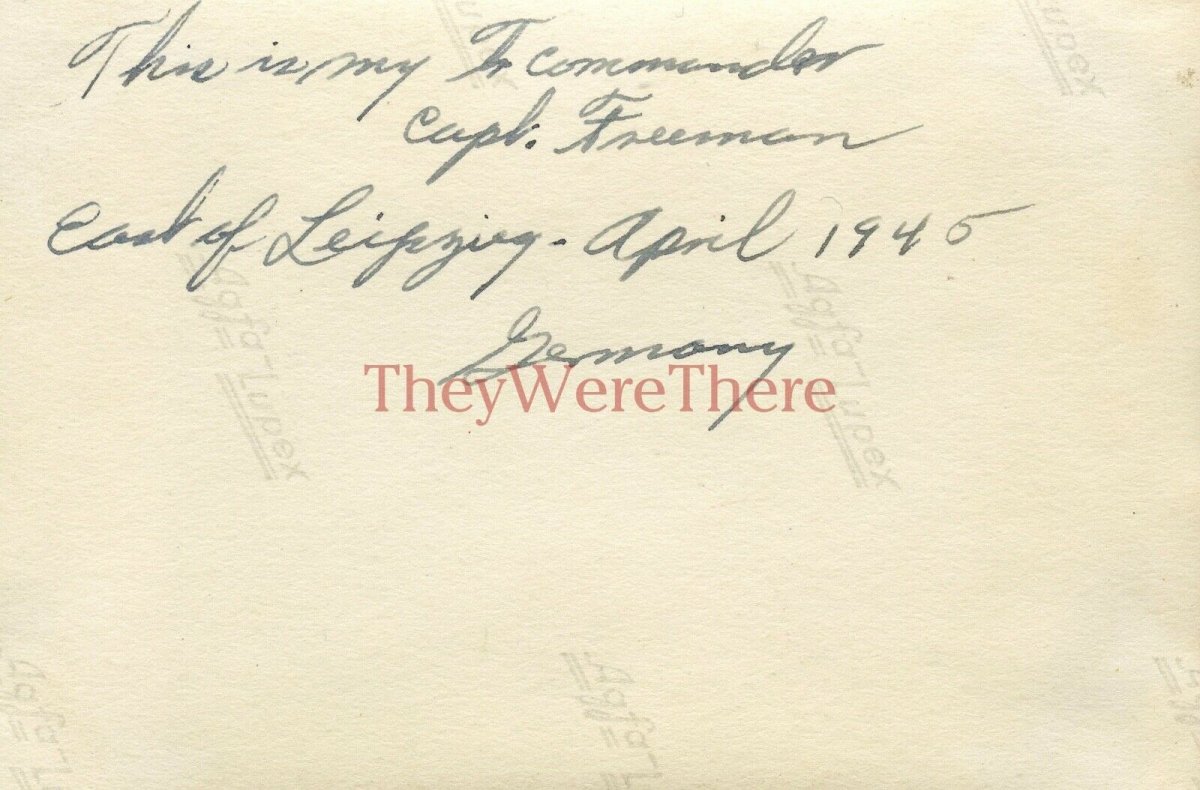 This is my Tr commander
Capt. Freeman
East of Leipzieg - April 1945
Germany
TheyWereThere
Agfa-Lupex
Agfa-Lupex
upex
upex
Agfa-L
Agfa-L